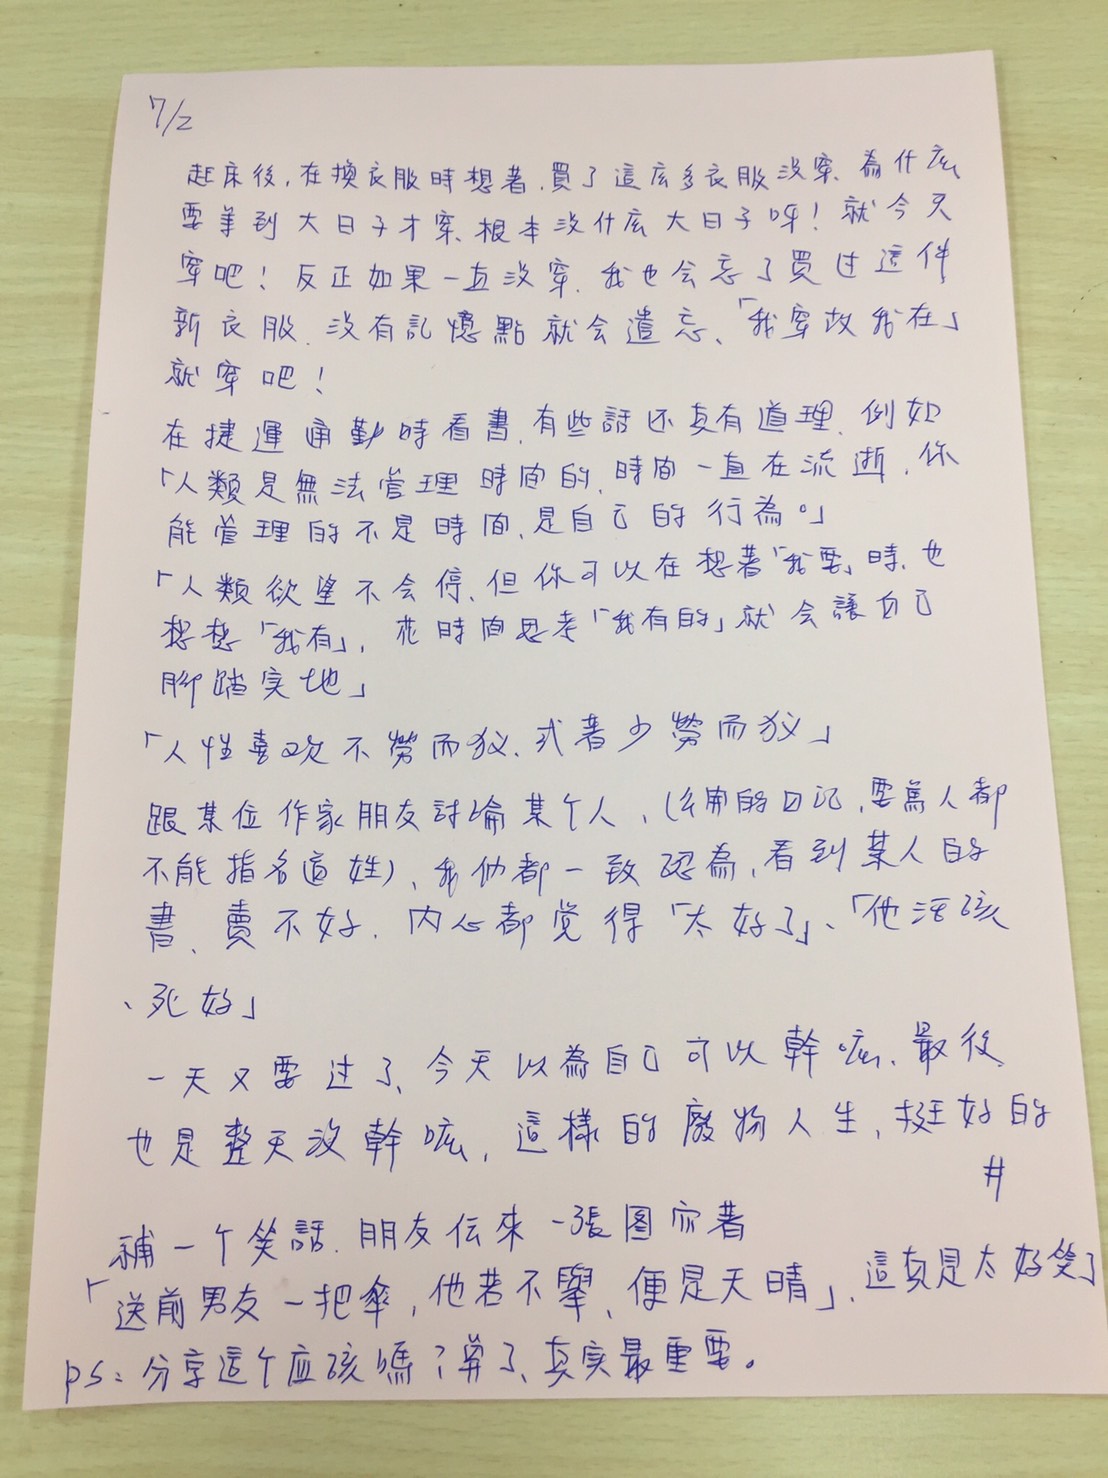 7/2
起床後,在換衣服時想著,買了這広多衣服没穿、為什広
要等到大日子才穿、根本没什広大日子呀!就今天
穿吧!反正如果一直没穿、我也会忘了買过這件
新衣服、没有記憶點就会遺忘、「我穿故我在」
就穿吧!
在捷運通勤時看書、有些話还真有道理、例如
「人類是無法管理時間的、時間一直在流逝、你
能管理的不是時間、是自己的行為。」
「人類欲望不会停、但你可以在想著「我要」時、也
想想「我有」,花時間思考「我有的」就会讓自己
腳踏実地」
「人性喜欢不勞而狡、或者少勞而狡」
跟某位作家朋友討論某个人、(公開的日記,要罵人都
不能指名道姓)、我们都一致認為,看到某人的
書、賣不好、内心都覚得「太好了」、「他活該
、死好」
一天又要过了、今天以為自己可以幹嘛、最後
也是整天没幹嘛,這樣的廢物人生,挺好的
#
補一个笑話、朋友伝來一張圖寫著
「送前男友一把傘,他若不舉、便是天晴」、這真是太好笑了
ps:分享這个应該嗎?算了、真実最重要。